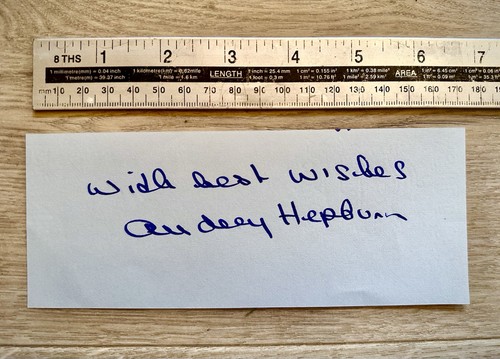 8 THS 1 2 3 4 5 6 7
1 millimetre(mm) = 0.04 inch 1 kilometre(km) = 0.62mile LENGTH 1 inch = 25.4 mm 1 cm² = 0.155 in² 1 km² = 0.38 mile² AREA 1 in² = 6.45 cm²
1 metre(m) = 39.37 inch 1 mile = 1.6 km 1 foot = 0.3 m 1 m² = 10.76 ft² 1 mile² = 2.59 km² 1 ft² = 0.09 m²
mm 10 20 30 40 50 60 70 80 90 100 110 120 130 140 150 160 170
With best wishes
Audrey Hepburn